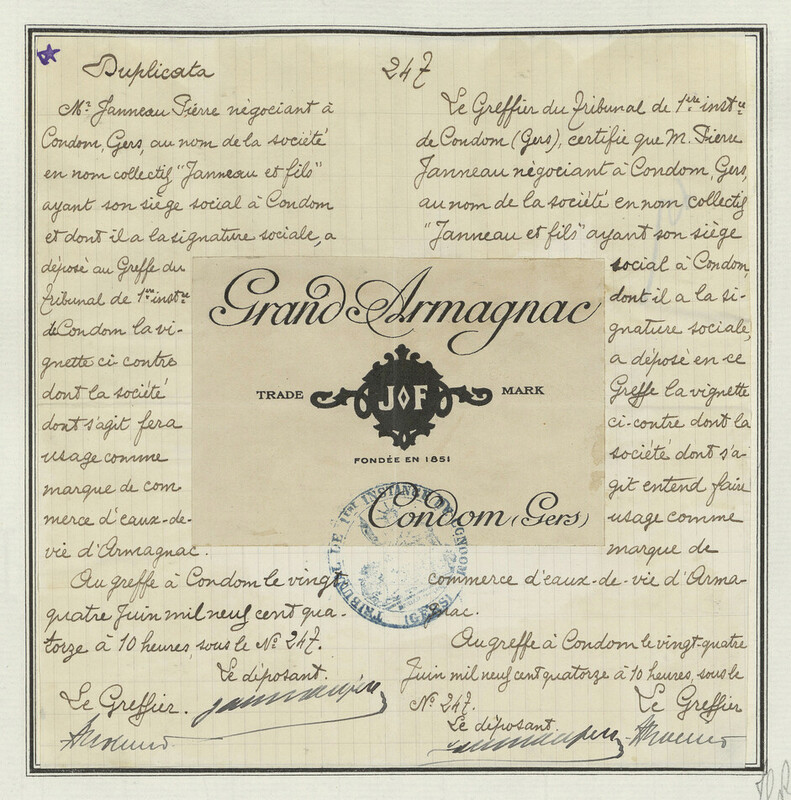 Duplicata
247
Mr. Janneau Pierre négociant à
Condom, Gers, au nom de la société
en nom collectif "Janneau et fils"
ayant son siège social à Condom
et dont il a la signature sociale, a
déposé au Greffe du
Tribunal de 1ère instce
de Condom la vi-
gnette ci-contre
dont la société
dont s'agit fera
usage comme
marque de com
merce d'eaux-de-
vie d'Armagnac.
Au greffe à Condom le vingt
quatre Juin mil neuf cent qua-
torze à 10 heures, sous le No 247.
Le déposant.
Le Greffier.
Le Greffier du Tribunal de 1ère instce
de Condom (Gers), certifie que M. Pierre
Janneau négociant à Condom, Gers,
au nom de la société en nom collectif
"Janneau et fils" ayant son siège
social à Condom,
dont il a la si-
gnature sociale,
a déposé en ce
Greffe la vignette
ci-contre dont la
société dont s'a-
git entend faire
usage comme
marque de
commerce d'eaux-de-vie d'Arma-
gnac.
Au greffe à Condom le vingt-quatre
Juin mil neuf cent quatorze à 10 heures, sous le
No 247.
Le Greffier
Le déposant
Grand Armagnac
TRADE J F MARK
FONDÉE EN 1851
Condom (Gers)
TRIBUNAL DE 1ERE INSTANCE DE CONDOM
(GERS)